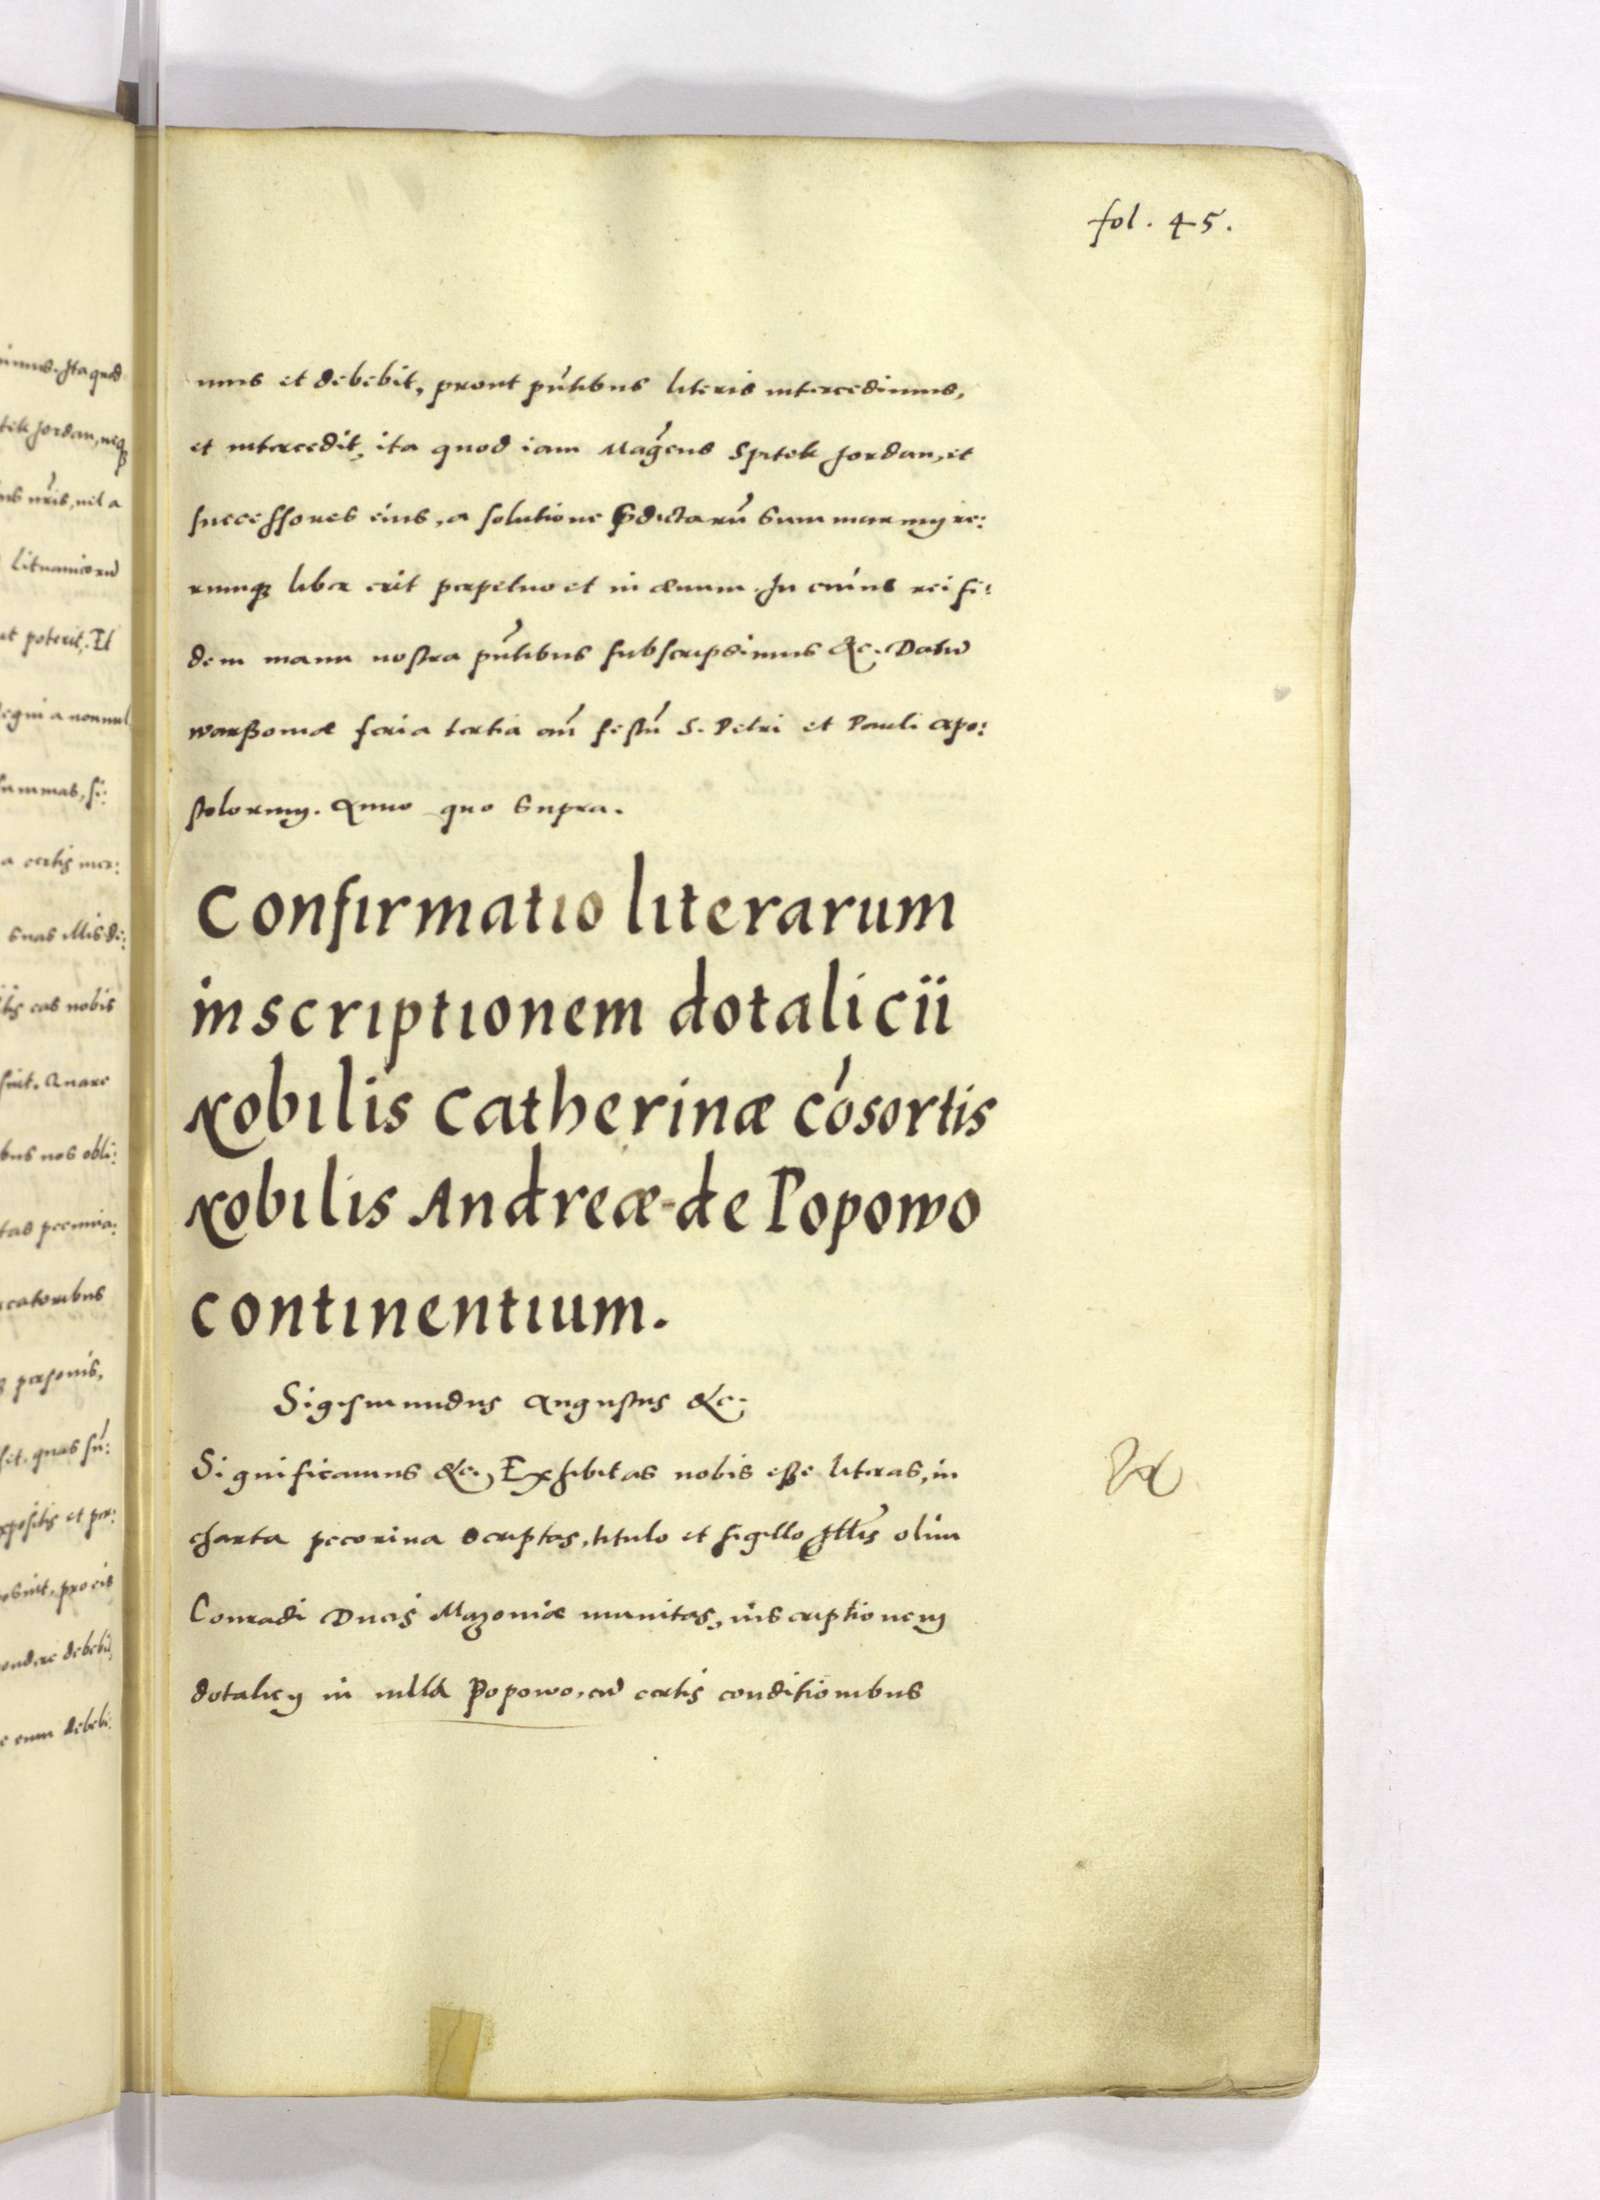 fol. 45.
mus et debebit, prout pñtibus literis intercedimus,
et intercedit, ita quod iam Magcus Spitek Jordan, et
successores eius, a solutione pdictarũ summarum ire:
rumqꝫ liber erit perpetuo et in ævum. In cuius rei fi:
dem manu nostra pñtibus subscripsimus &c. Datũ
Warßoviæ feria tertia añ festũ S. Petri et Pauli Apo:
stolorum. Anno quo supra.
Confirmatio literarum
inscriptionem dotalicii
Nobilis Catherinæ cósortis
Nobilis Andreæ de Popowo
continentium.
Sigismundus Augustus &c.
Significamus &c. Exhibitas nobis eße literas, in
charta pecorina scriptas, titulo et sigillo Illis olim
Conradi Ducis Mazoviæ munitas, inscriptionem
dotalicij in villa Popowo, cũ certis conditionibus